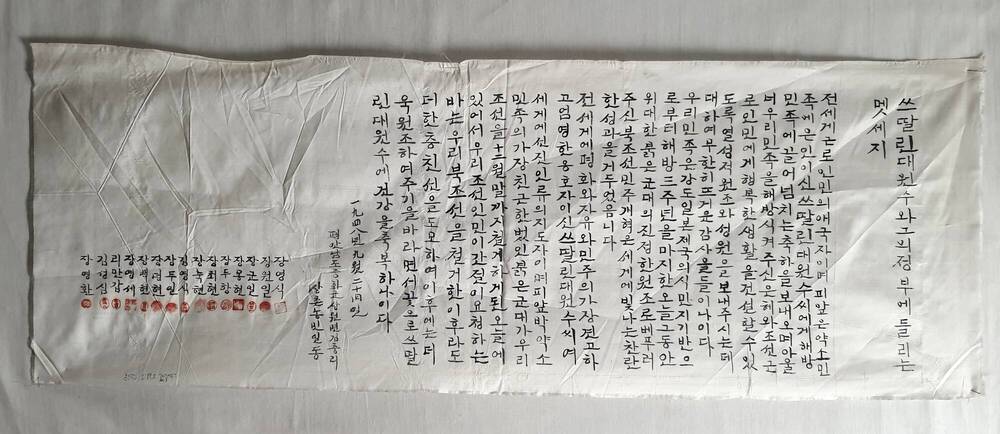 쓰딸린대원수와그의정부에들리는
멧세지
전세게근로인민의애국자이며피압은약소민
족에은인이신쓰딸린대원수씨에게해방
민족에끌어넘치는축하을보내오며아울
너우리민족을해방식켜주신은혜와조선근
로인민에게행복한생활을건설할수있
도록열성저원조와성원을보내주시는데
대하여무한히뜨거운감사을들이나이다
우리민족은강도일본제국의식민지기반으
로부터해방三주년을마지한오늘그동안
위대한붉은군대의진정한원조로베푸러
주신북조선민주개혁은세게에빛나는찬란
한성과을거두었음니다
전세게에평화와자유와민주의가장견고하
고엄영한옹호자이신쓰딸린대원수씨여
세게에선진인류의지도자이며피압박약소
민족의가장친근한벗인붉은군대가우리
조선을十二월말까지철게하게된오늘에
있어서우리조선인민이간절이요청하는
바는우리북조선을철거한이후라도
더한층친선을도모하여이후에는더
욱원조하여주기을바라면서끝으로쓰딸
린대원수에건강을축복하나이다
一九四八년九월二十四일
평안남도중화군상원면
상촌농민일동
장영식
장천일
장군일
장용현
장두항
장최현
장녹현
김영식
장두일
장덕현
장백현
장영세
리만갑
김경심
장영화